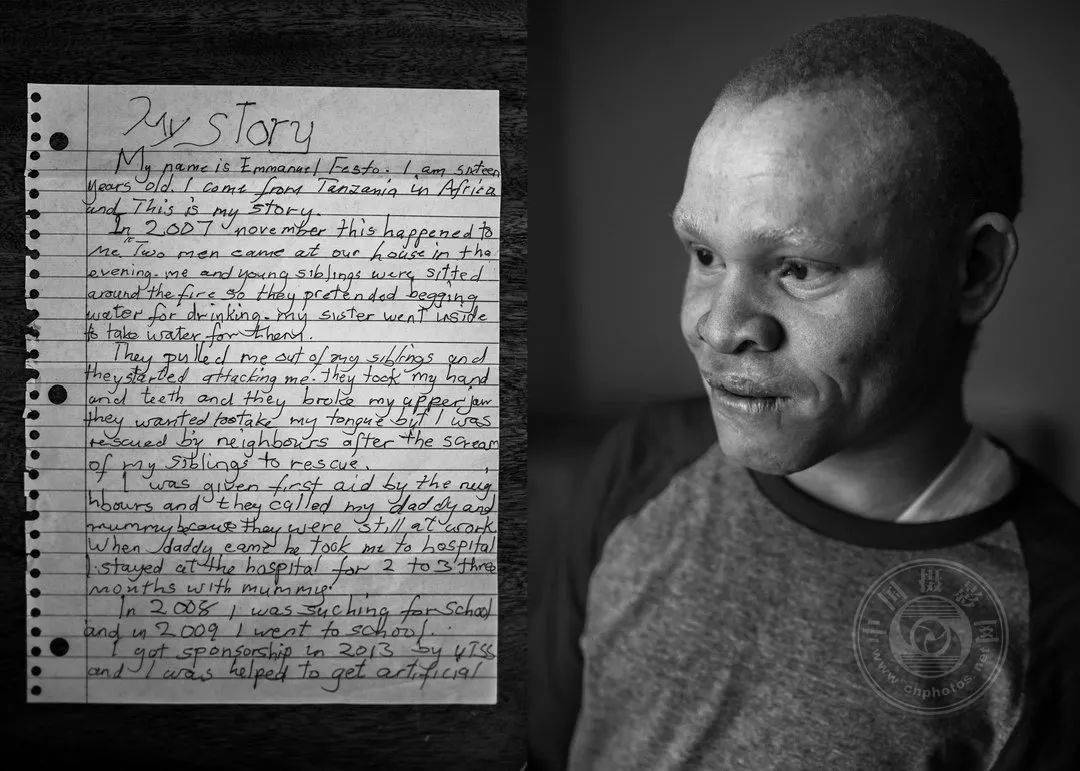 My story
My name is Emmanuel Festo. I am sixteen
years old. I come from Tanzania in Africa
and This is my story.
In 2007 november this happened to
me "Two men came at our house in the
evening. me and young siblings were sitted
around the fire so they pretended begging
water for drinking. my suster went inside
to take water for them.
They pulled me out of my siblings and
they started attacking me. they took my hand
and teeth and they broke my upper jaw
they wanted to take my tongue but I was
rescued by neighbours after the scream
of my siblings to rescue.
I was given first aid by the neig
hbours and they called my daddy and
mummy because they were still at work
When daddy came he took me to hospital
I stayed at the hospital for 2 to 3 three
months with mummy.
In 2008 I was suching for school
and in 2009 I went to school.
I got sponsorship in 2013 by UTSS
and I was helped to get artificial
中国摄影网
www.chphotos.net